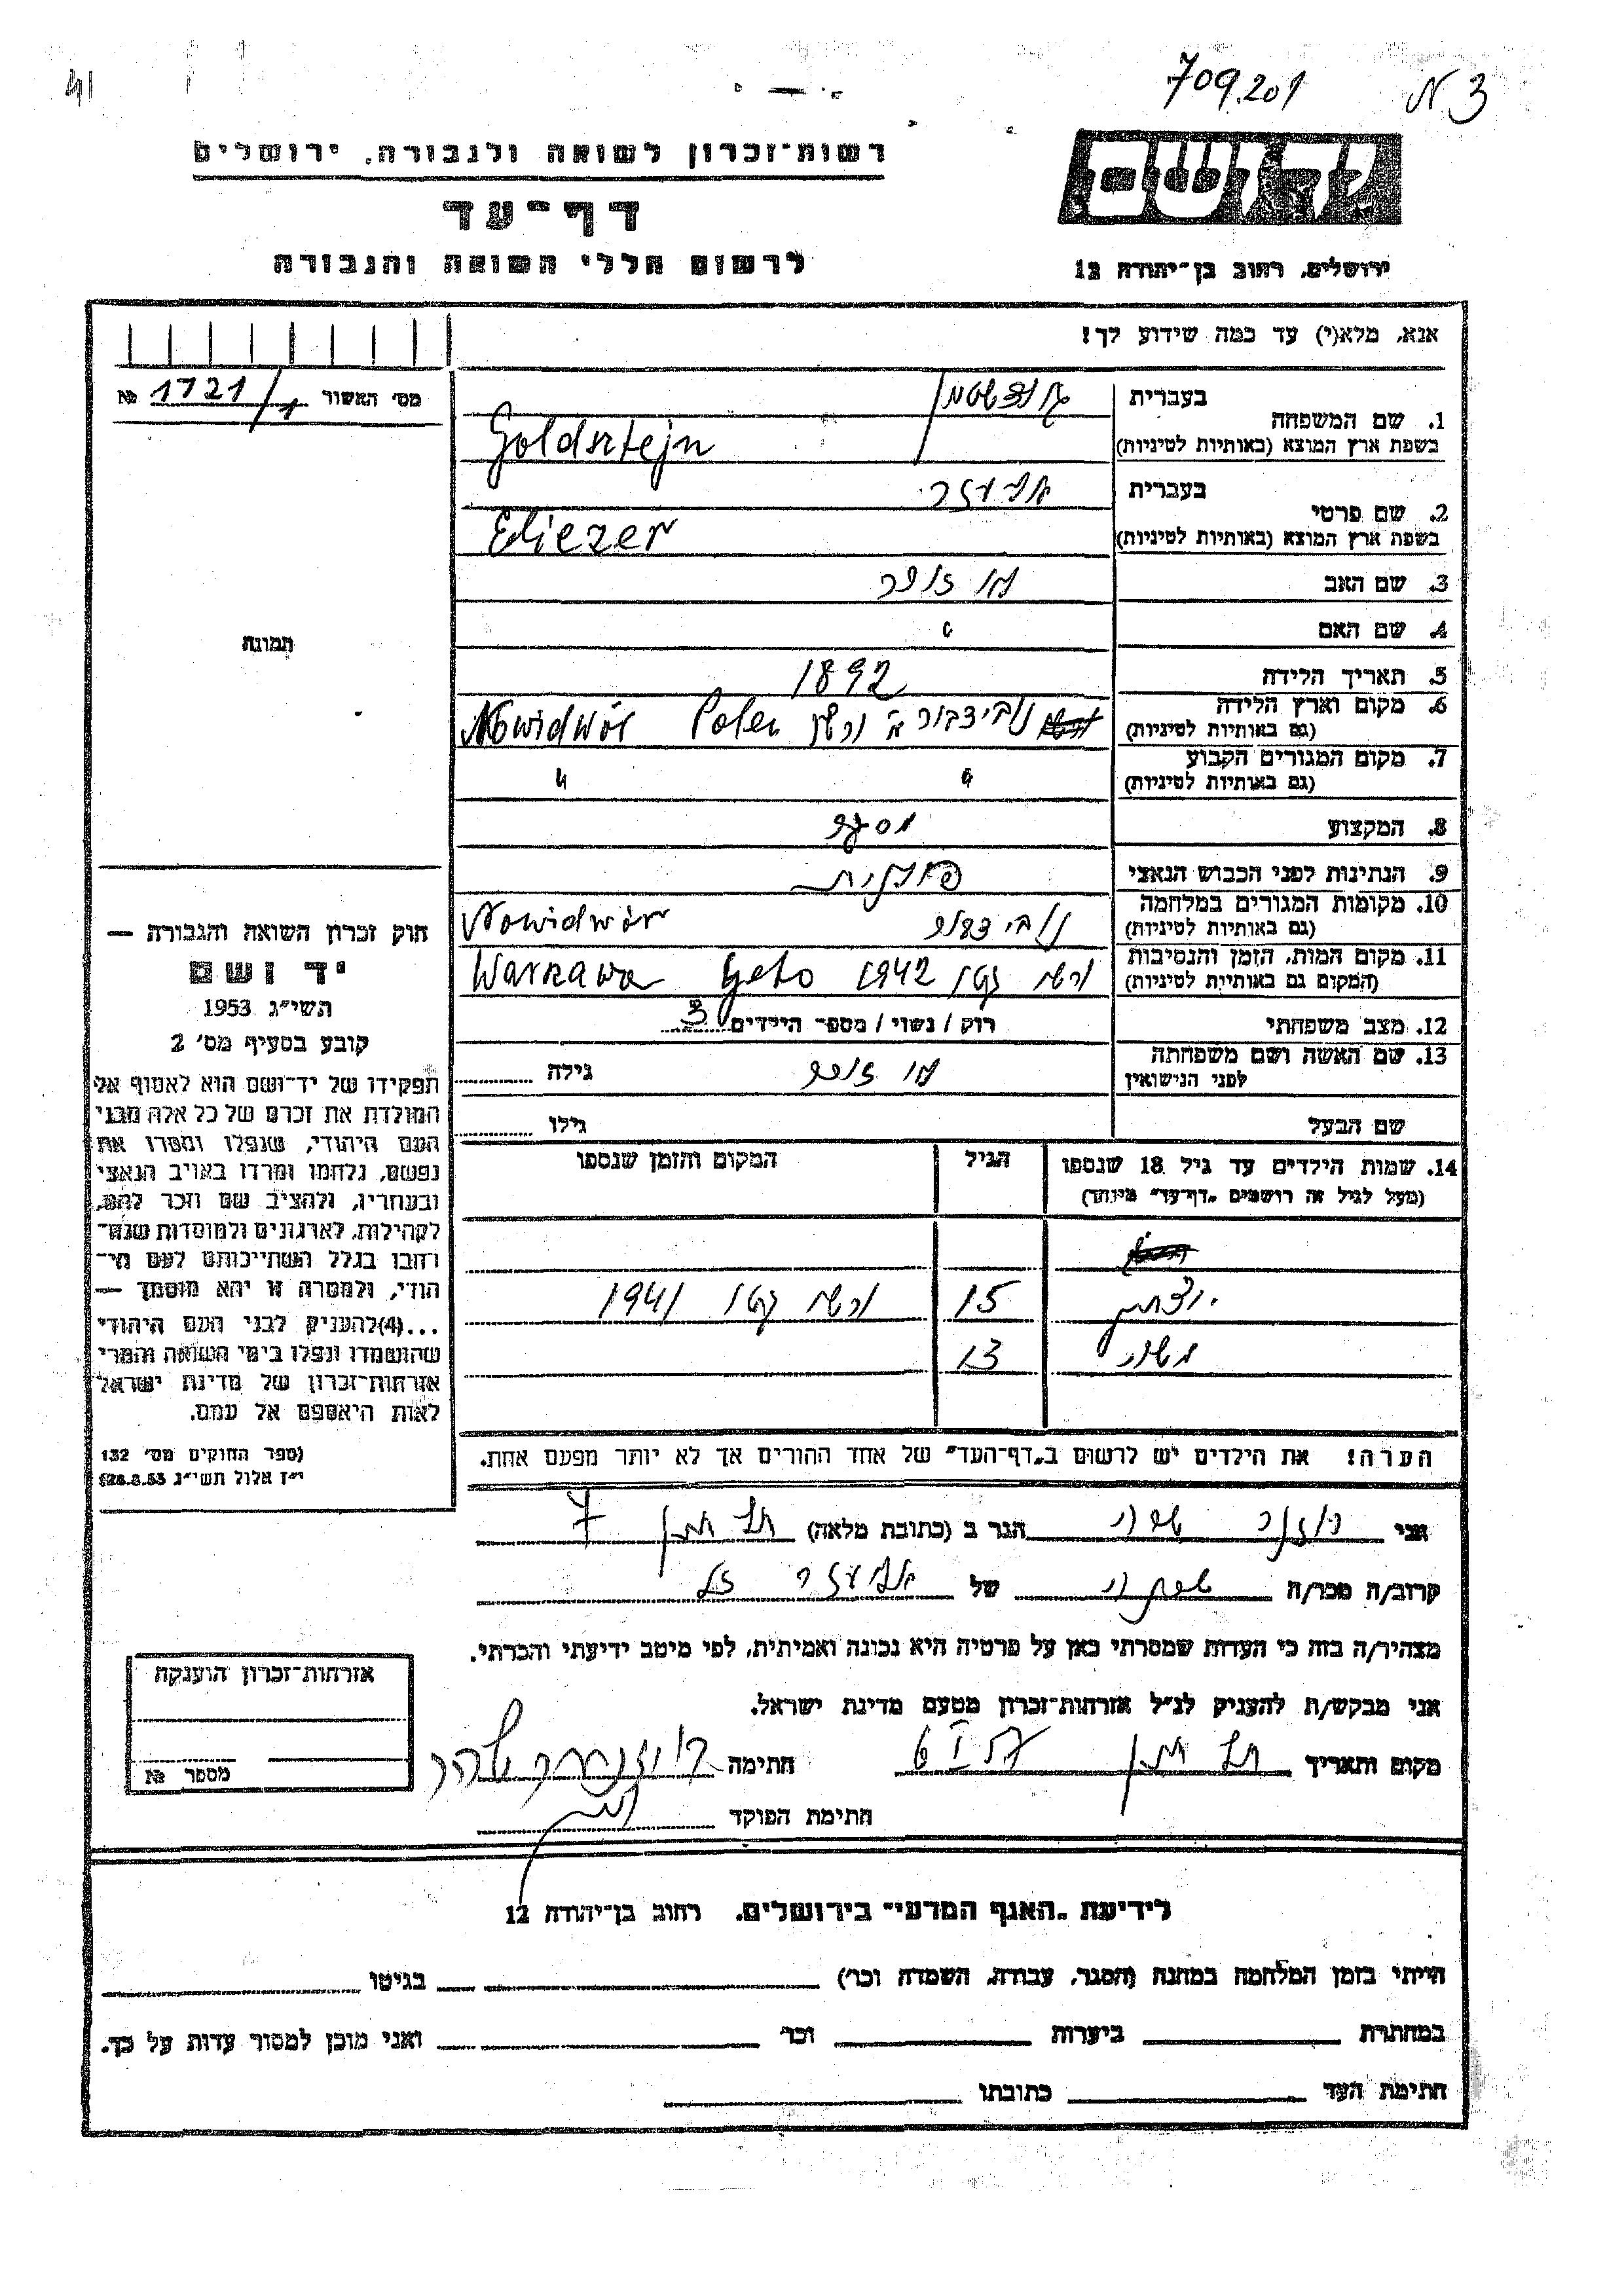 709.201
רשות־זכרון לשואה ולגבורה, ירושלים
דף־עד
לרשום חללי השואה והגבורה
ידושם
ירושלים, רחוב בן־יהודה 12
אנא, מלא(י) עד כמה שידוע לך!
מס׳ האשור 1721/1 №
1. שם המשפחה
בעברית גולדשטיין
בשפת ארץ המוצא (באותיות לטיניות) Goldsztejn
2. שם פרטי
בעברית אליעזר
בשפת ארץ המוצא (באותיות לטיניות) Eliezer
3. שם האב לא זוכר
4. שם האם "
5. תאריך הלידה 1892
6. מקום וארץ הלידה
(גם באותיות לטיניות) Nowidwór Polen
7. מקום המגורים הקבוע
(גם באותיות לטיניות) " "
8. המקצוע
9. הנתינות לפני הכבוש הנאצי פולנית
10. מקומות המגורים במלחמה
(גם באותיות לטיניות) Nowidwór
11. מקום המות, הזמן והנסיבות
(המקום גם באותיות לטיניות) ורשה גטו 1942 Warszawa Geto
12. מצב משפחתי רוק / נשוי / מספר הילדים 3
13. שם האשה ושם משפחתה
לפני הנישואין לא זוכר גילה
שם הבעל גילו
14. שמות הילדים עד גיל 18 שנספו הגיל המקום והזמן שנספו
(מעל לגיל זה רושמים „דף־עד” מיוחד)
15 ורשה גטו 1941
13
הערה! את הילדים יש לרשום ב„דף־העד” של אחד ההורים אך לא יותר מפעם אחת.
תמונה
חוק זכרון השואה והגבורה —
יד ושם
תשי״ג 1953
קובע בסעיף מס׳ 2
תפקידו של יד־ושם הוא לאסוף אל
המולדת את זכרם של כל אלה מבני
העם היהודי, שנפלו ומסרו את
נפשם, נלחמו ומרדו באויב הנאצי
ובעוזריו, ולהציב שם וזכר להם,
לקהילות, לארגונים ולמוסדות שנח־
רבו בגלל השתייכותם לעם הי־
הודי, ולמטרה זו יהא מוסמך —
...(4)להעניק לבני העם היהודי
שהושמדו ונפלו בימי השואה והמרי
אזרחות־זכרון של מדינת ישראל
לאות היאספם אל עמם.
(ספר החוקים מס׳ 132
י״ז אלול תשי״ג 28.8.53)
אני הגר ב (כתובת מלאה) 7
קרוב/ה מכר/ה של אליעזר
מצהיר/ה בזה כי העדות שמסרתי כאן על פרטיה היא נכונה ואמיתית, לפי מיטב ידיעתי והכרתי.
אני מבקש/ת להעניק לנ״ל אזרחות־זכרון מטעם מדינת ישראל.
מקום ותאריך חתימה
חתימת הפוקד
אזרחות־זכרון הוענקה
מספר №
לידיעת „האגף המדעי” בירושלים, רחוב בן־יהודה 12
הייתי בזמן המלחמה במחנה (הסגר, עבודה, השמדה וכו׳) בגיטו
במחתרת ביערות וכו׳ ואני מוכן למסור עדות על כך.
חתימת העד כתובתו